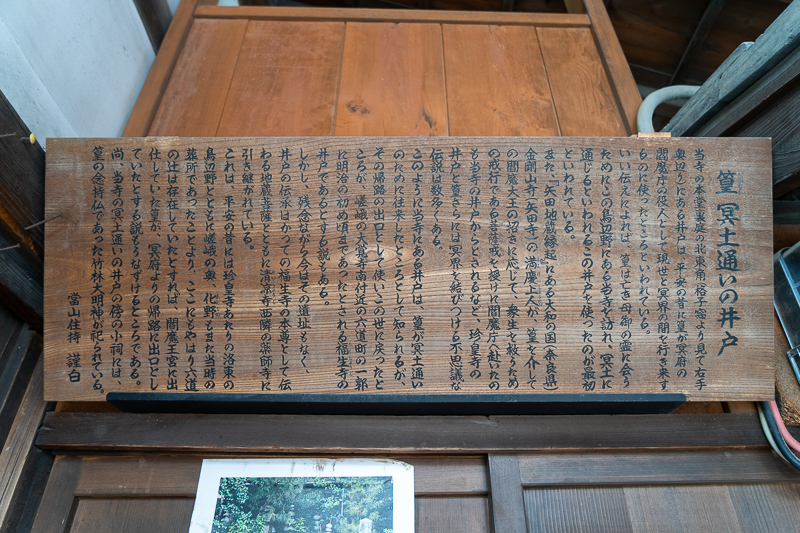 篁 冥土通いの井戸
当寺の本堂裏庭の北東角(格子窓より見て右手
奥辺り)にある井戸は、平安の昔に篁が冥府の
閻魔庁の役人として現世と冥界の間を行き来す
るのに使ったところといわれている。
いい伝えによれば、篁は亡き母御の霊に会う
ためにこの鳥辺野にある当寺を訪れ、冥土に
通じるといわれるこの井戸を使ったのが最初
といわれている。
また、「矢田地蔵縁起」にある大和の国(奈良県)
金剛山寺(矢田寺)の満慶上人が、篁を介して
の閻魔大王の招きに応じて、衆生を救うため
の戒行である菩薩戒を授けに閻魔庁へ赴いたの
も当寺の井戸からとされるなど、珍皇寺の
井戸と篁さらには冥界とを結びつける不思議な
伝説は数多くある。
このように当寺にある井戸は、篁が冥土通い
のために往来したところとして知られるが、
その帰路の出口として使いこの世に戻ったと
ころが、嵯峨の大覚寺門前付近の六道町の一郭
に明治の初め頃まであったとされる福生寺の
井戸であるとする説もある。
しかし、残念ながら今はその遺址もなく、
井戸の伝承はかつての福生寺の本尊として伝
わる地蔵菩薩とともに清凉寺西隣の薬師寺に
引き継がれている。
これは、平安の昔には珍皇寺あたりの洛東の
鳥辺野とともに嵯峨の奥、化野もまた当時の
葬所であったことより、ここにもやはり六道
の辻は存在していたとすれば、閻魔王宮に出
仕していた篁が、冥府よりの帰路に出口とし
ていたとする説もうなずけるところである。
尚、当寺の冥土通いの井戸の傍の小祠には、
篁の念持仏であった竹林大明神が祀られている。
當山住持 謹白